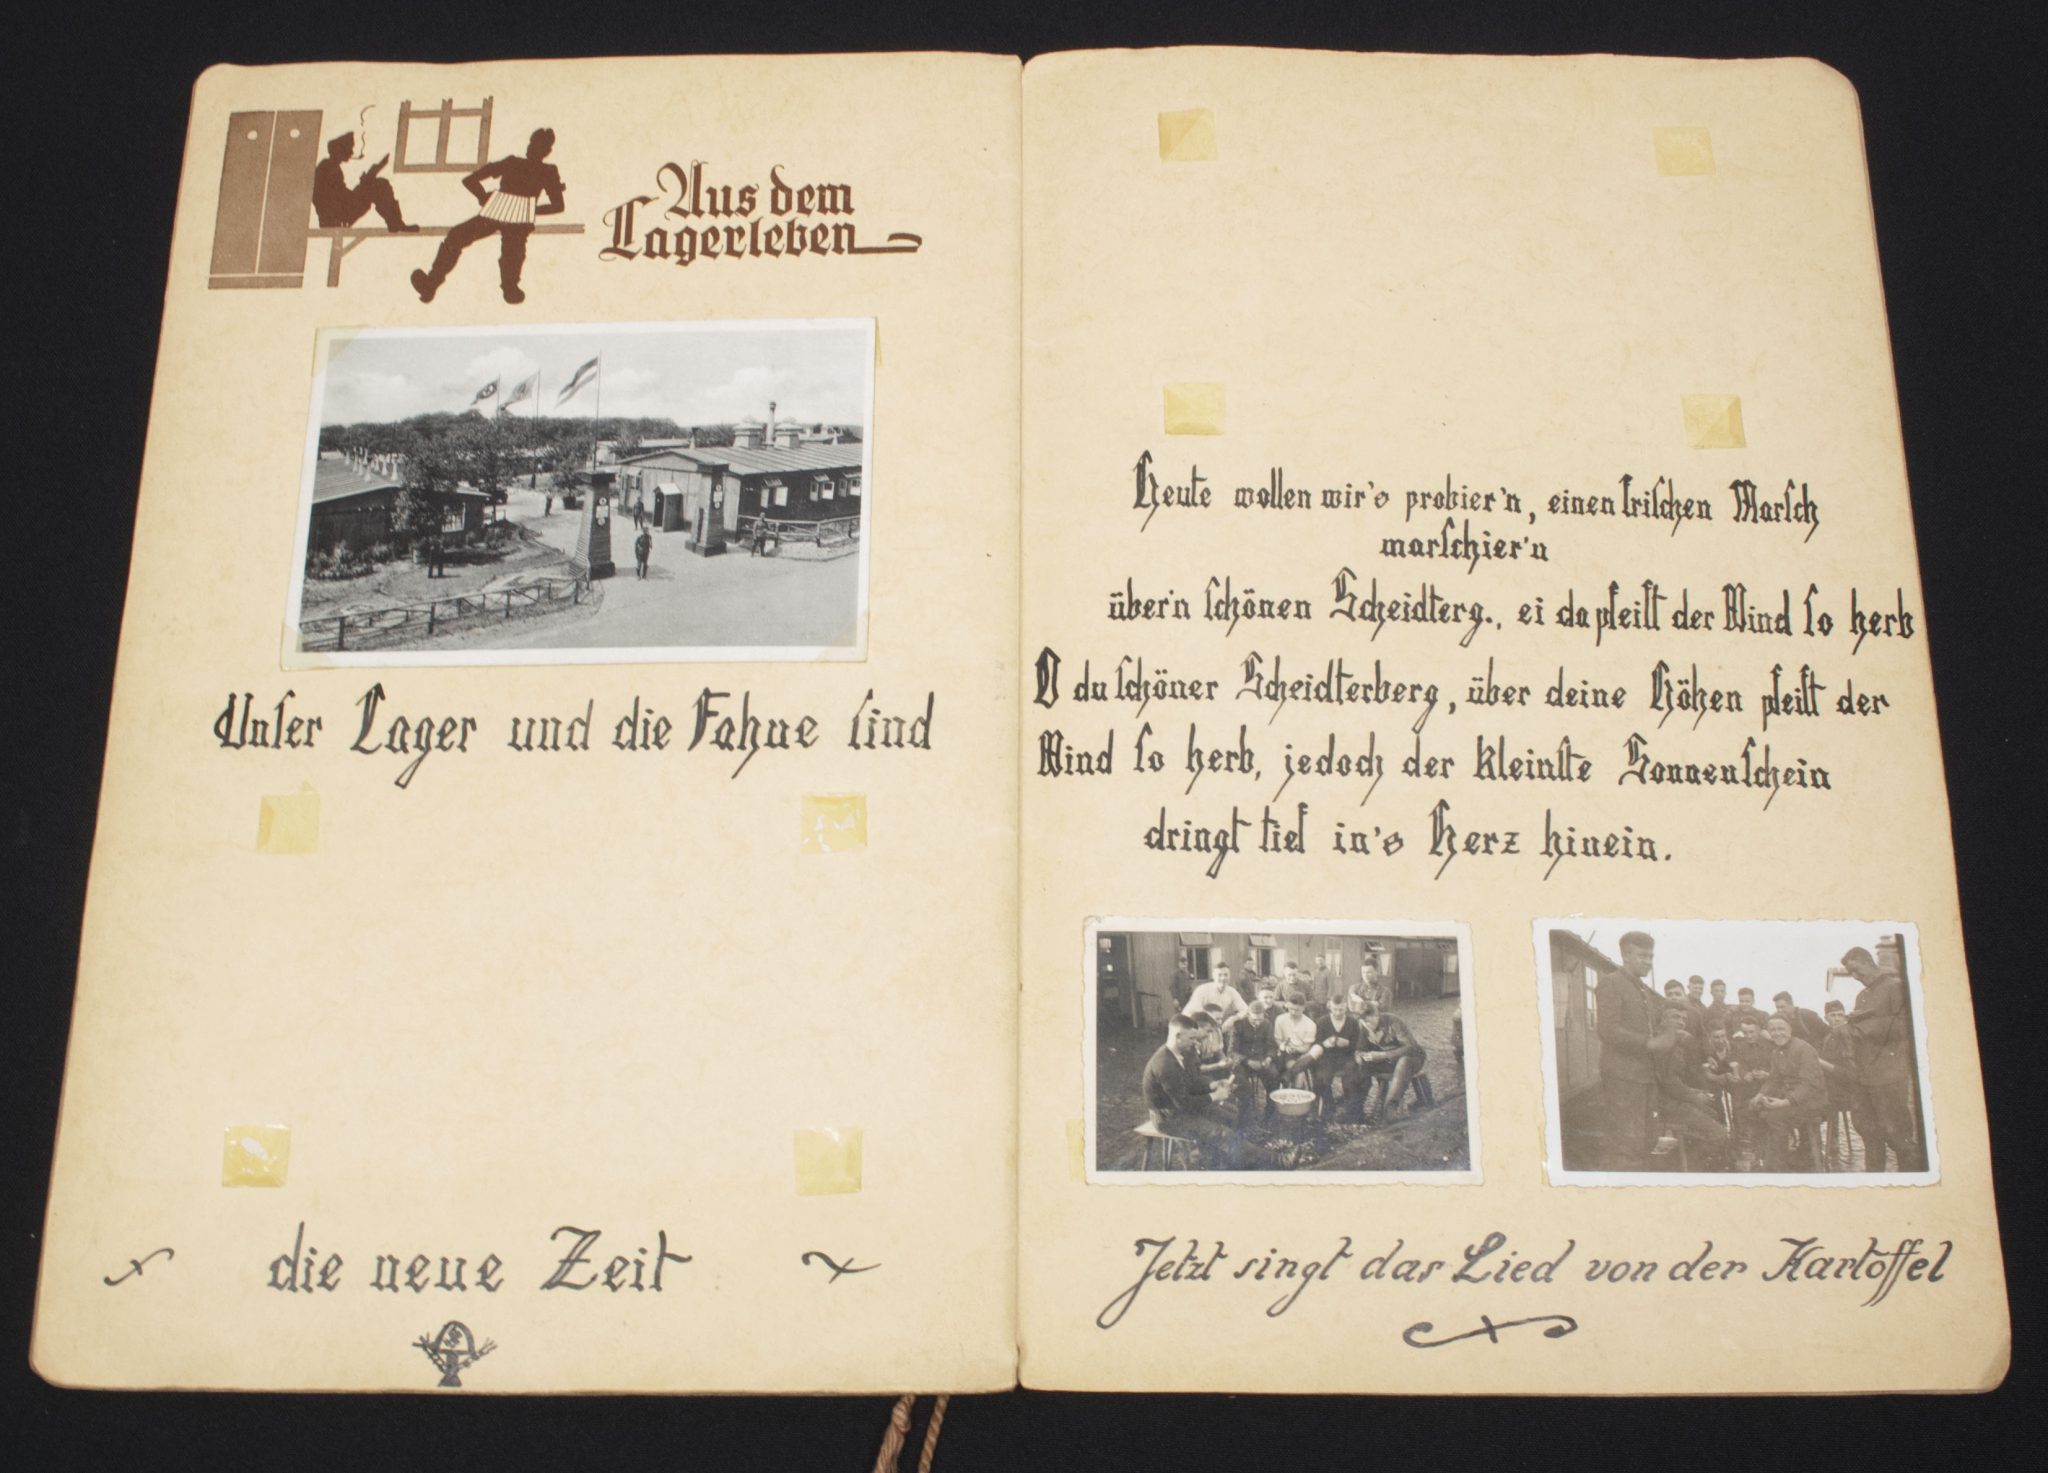 Aus dem
Lagerleben
Unser Lager und die Fahne sind
die neue Zeit
Heute wollen wir's probier'n, einen frischen Marsch
marschier'n
über'n schönen Scheidterg., ei da pfeift der Wind so herb
O du schöner Scheidterberg, über deine Höhen pfeift der
Wind so herb, jedoch der kleinste Sonnenschein
dringt tief in's Herz hinein.
Jetzt singt das Lied von der Kartoffel